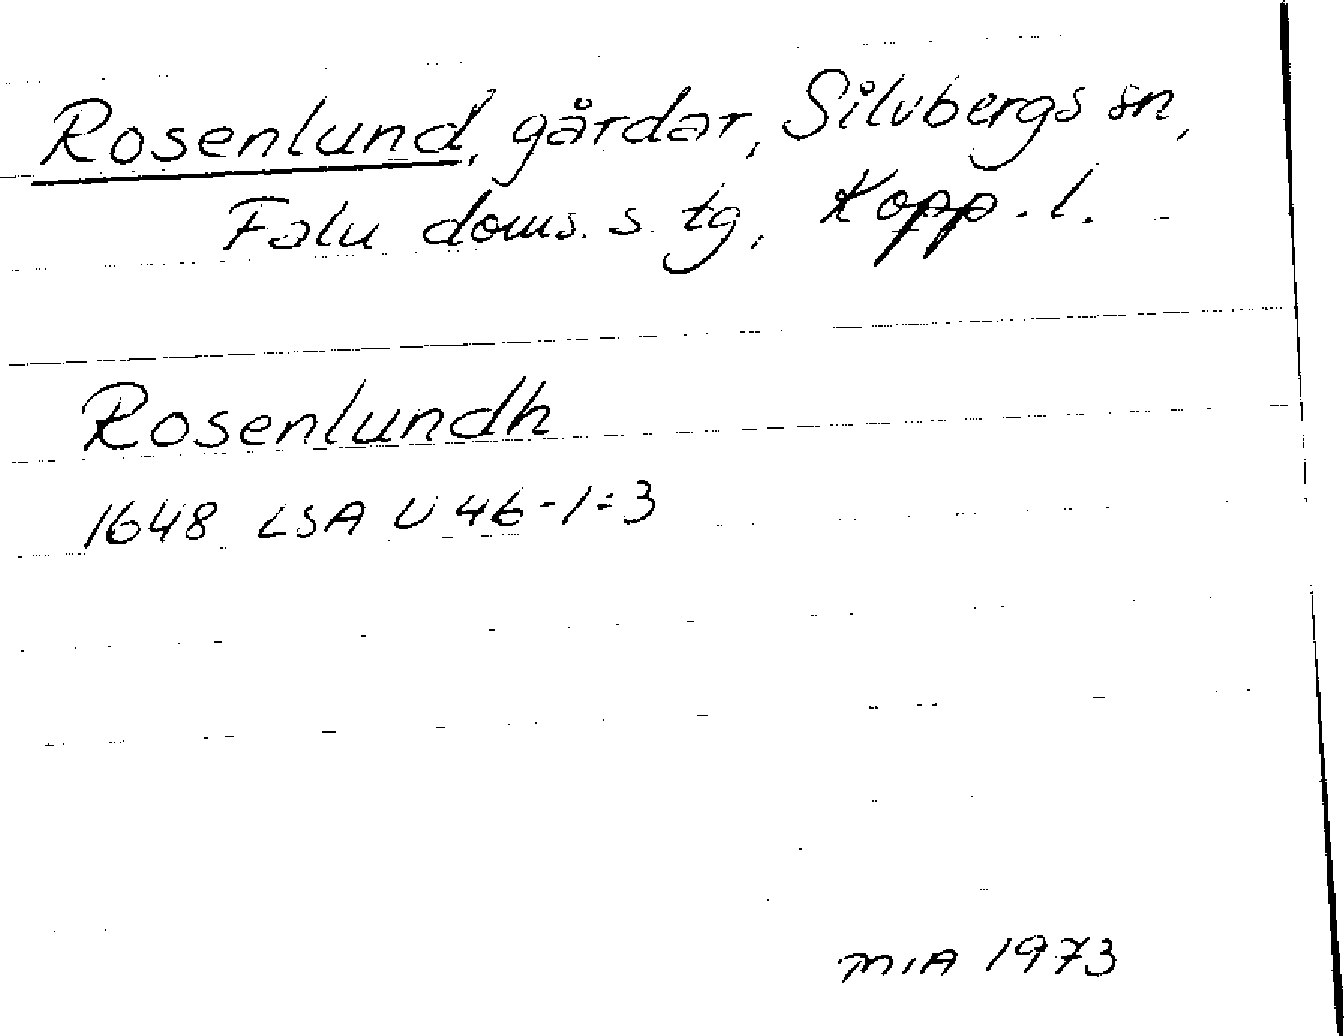 Rosenlund, gårdar, Silvbergs sn,
Falu doms. s. tg, Kopp. l.
Rosenlundh
1648 LSA U 46-1:3
MIA 1973